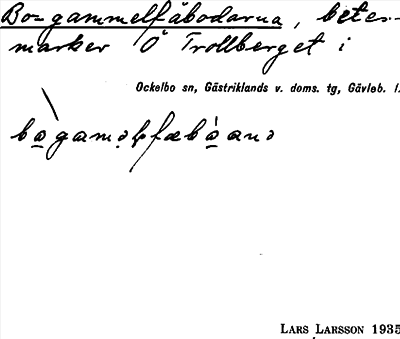 Bo-gammelfäbodarna, betes-
marker Ö Trollberget i
Ockelbo sn, Gästriklands v. doms. tg, Gävleb. l.
LARS LARSSON 1935